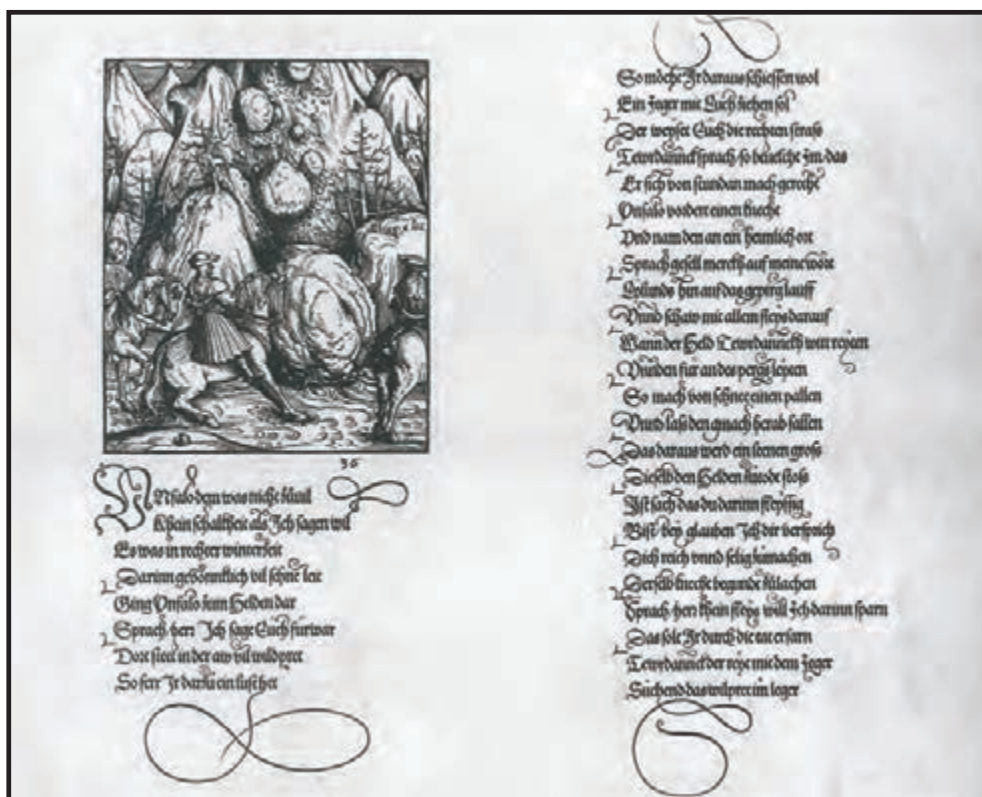 36
VNfalo dem was nicht zůuil
Khein schalkheit als Ich sagen wil
Es was in rechter winterzeit
Darinn gewönntlich vil schne leit
Ging Vnfalo zum Helden dar
Sprach herr Ich sage Euch furwar
Dort steet in der aw vil wildpret
So ferr Ir darzů ein lust het
So möcht Ir daraus schiessen wol
Ein Jeger mit Euch ziehen sol
Der weyset Euch die rechten strass
Tewrdannck sprach so beuelcht Jm das
Er sich von stundan mach gerecht
Vnfalo vordert einen knecht
Vnd nam den an ein heimlich ort
Sprach gesell merckh auf meine wort
hin auf das gepirg lauff
Vnnd schaw mit allem fleys darauf
Wann der Held Tewrdannckh wirt reyten
Vnnden für an des pergs leyten
So mach von schnee einen pallen
Vnnd laß den gmach herab fallen
Das daraus werd ein leenen gross
Dieselb den Helden zů tode stoss
Ist sach das du darinn fleyssig
Bist bey glauben Ich dir versprich
Dich reich vnnd selig zůmachen
Derselb knecht begunde zůlachen
Sprach herr khein fleys will Ich darinn sparn
Das solt Ir durch die tat erfarn
Tewrdannck der reyt mit dem Jeger
Sůchend das wilpret im leger